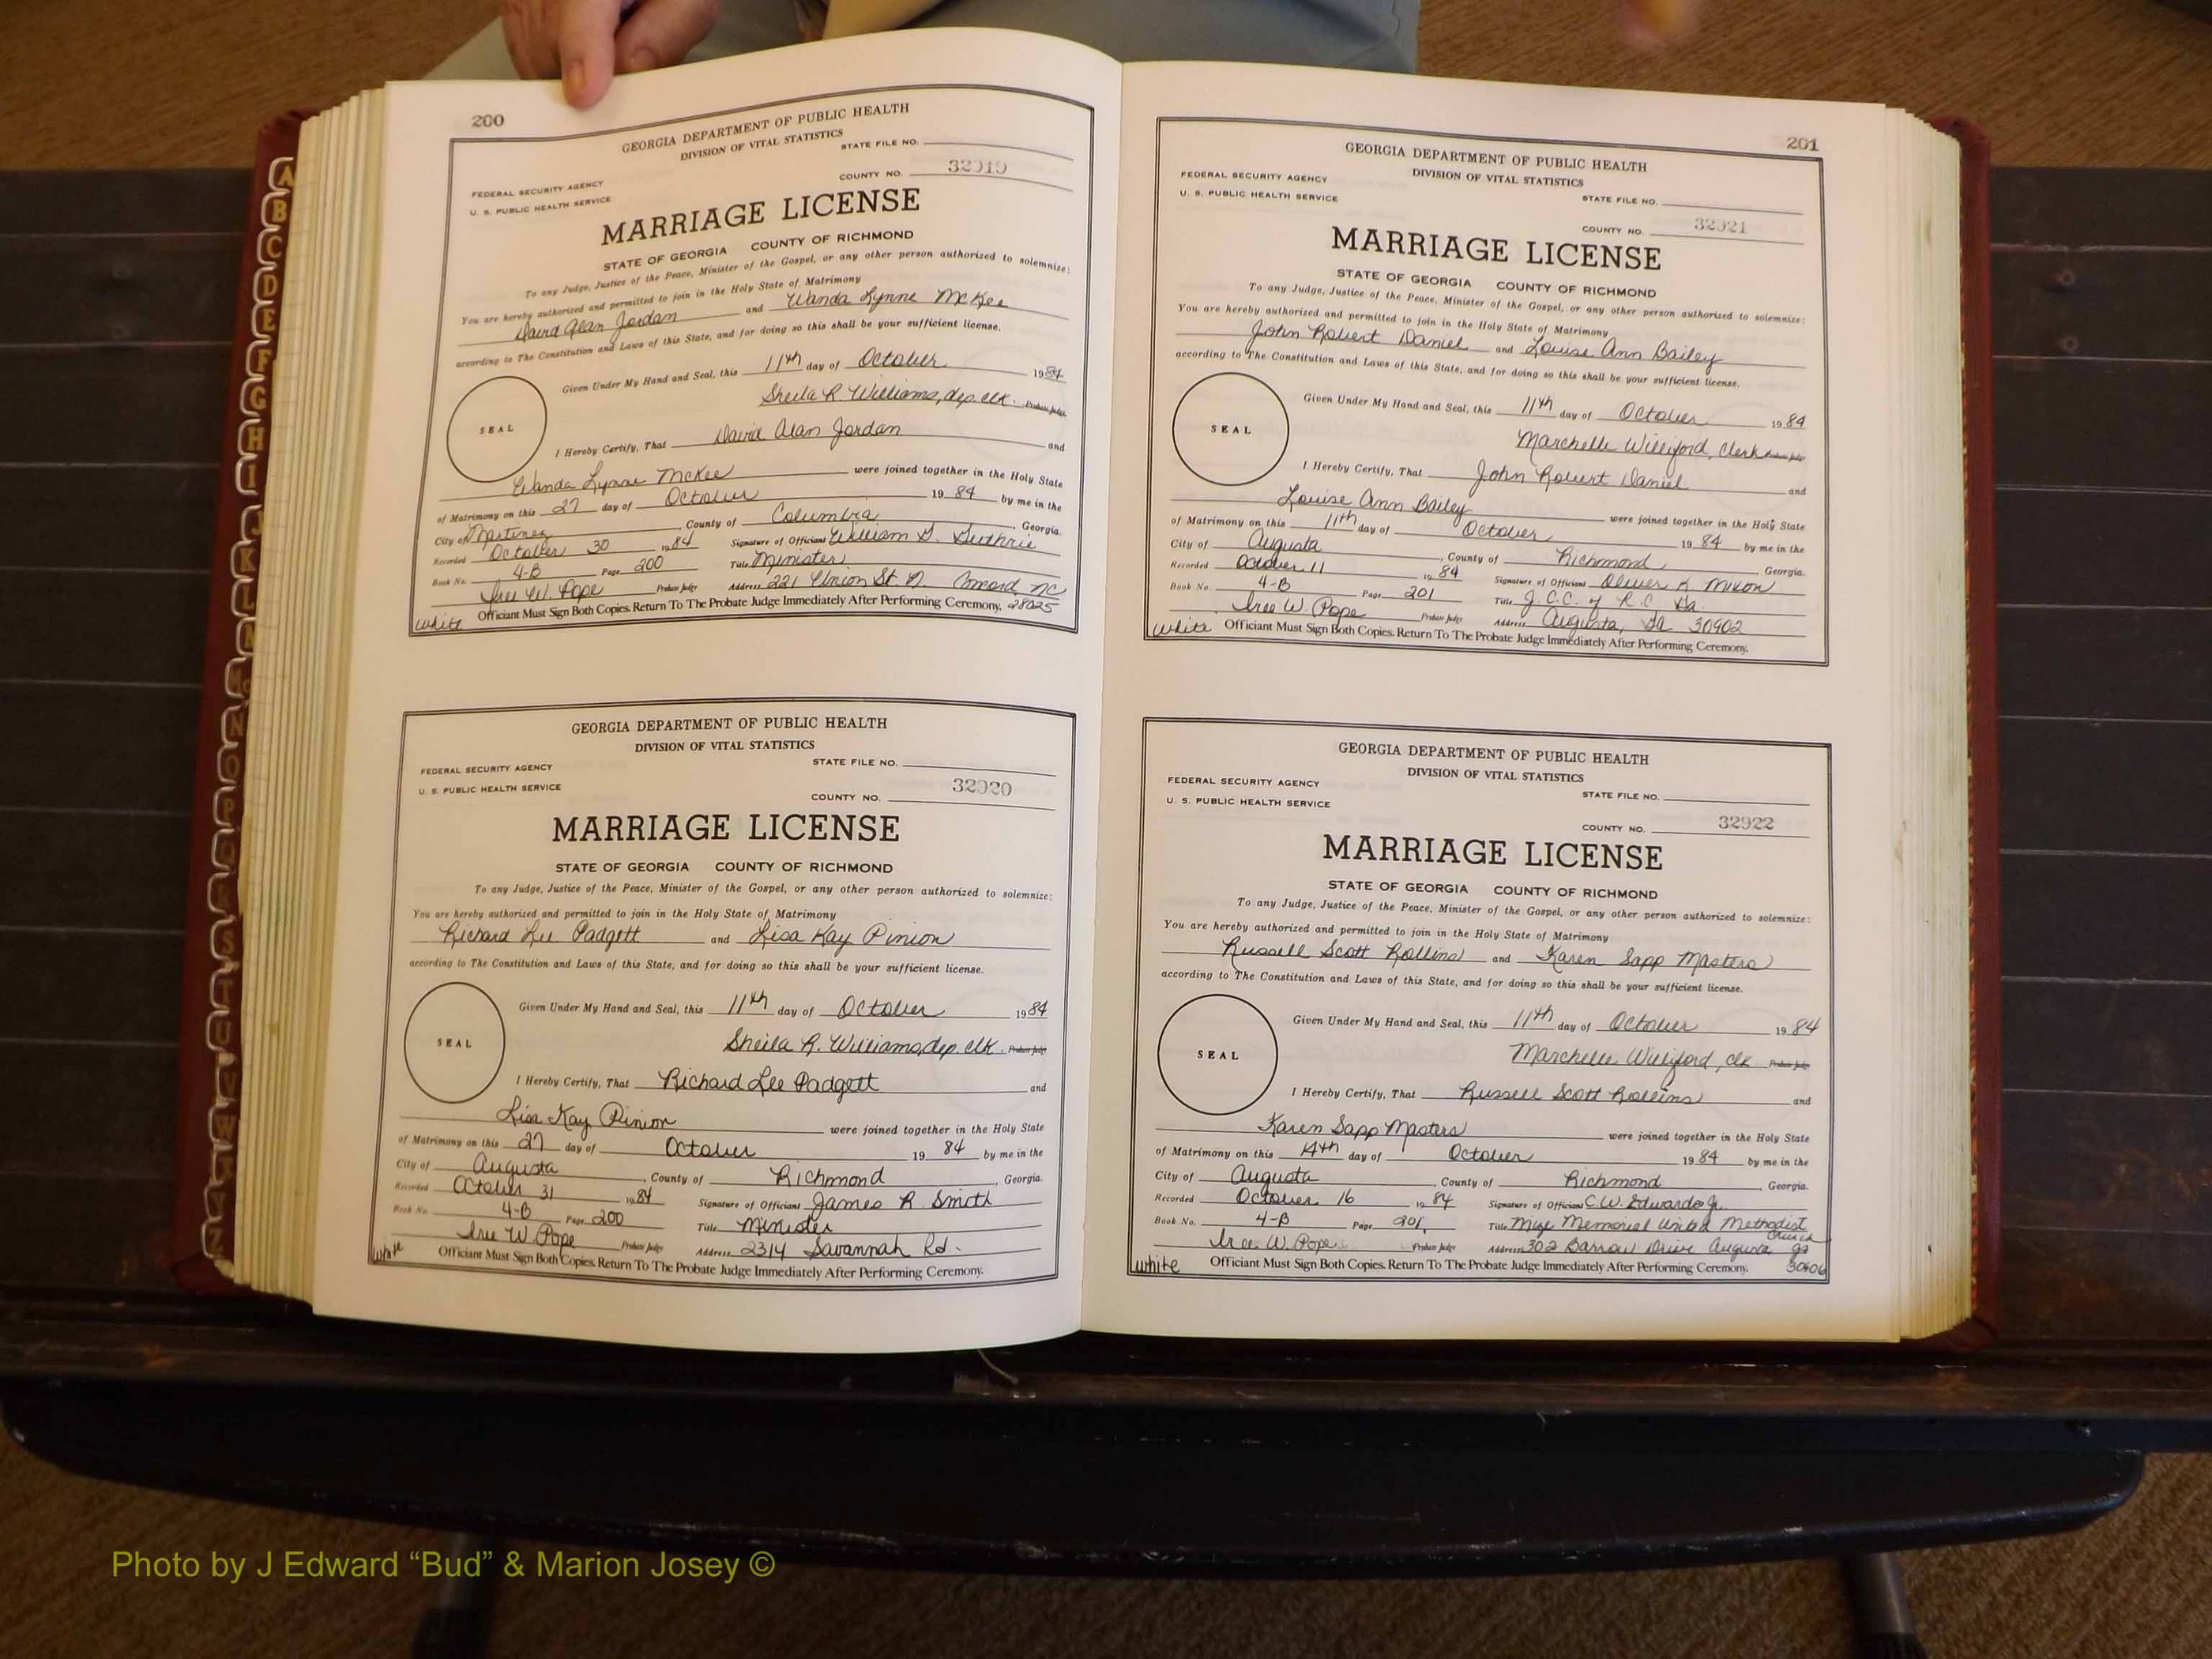 200
GEORGIA DEPARTMENT OF PUBLIC HEALTH
DIVISION OF VITAL STATISTICS
STATE FILE NO.
32919
COUNTY NO.
FEDERAL SECURITY AGENCY
U. S. PUBLIC HEALTH SERVICE
MARRIAGE LICENSE
STATE OF GEORGIA COUNTY OF RICHMOND
To any Judge, Justice of the Peace, Minister of the Gospel, or any other person authorized to solemnize:
You are hereby authorized and permitted to join in the Holy State of Matrimony
David Alan Jordan and Wanda Lynne McKee
according to The Constitution and Laws of this State, and for doing so this shall be your sufficient license.
Given Under My Hand and Seal, this 11th day of October 1984
Sheila R. Williams, dep. clk. Probate Judge
SEAL
I Hereby Certify, That David Alan Jordan and
Wanda Lynne McKee were joined together in the Holy State
of Matrimony on this 27 day of October 19 84 by me in the
City of Martinez, County of Columbia, Georgia.
Recorded October 30 1984 Signature of Officiant William G. Guthrie
Book No. 4-B Page 200 Title Minister
Iree W. Pope Probate Judge Address 221 Union St. N. Concord, NC
Officiant Must Sign Both Copies. Return To The Probate Judge Immediately After Performing Ceremony. 28025
White
GEORGIA DEPARTMENT OF PUBLIC HEALTH
DIVISION OF VITAL STATISTICS
STATE FILE NO.
FEDERAL SECURITY AGENCY
U. S. PUBLIC HEALTH SERVICE
COUNTY NO. 32920
MARRIAGE LICENSE
STATE OF GEORGIA COUNTY OF RICHMOND
To any Judge, Justice of the Peace, Minister of the Gospel, or any other person authorized to solemnize:
You are hereby authorized and permitted to join in the Holy State of Matrimony
Richard Lee Padgett and Lisa Kay Pinion
according to The Constitution and Laws of this State, and for doing so this shall be your sufficient license.
Given Under My Hand and Seal, this 11th day of October 1984
Sheila R. Williams, dep. clk. Probate Judge
SEAL
I Hereby Certify, That Richard Lee Padgett and
Lisa Kay Pinion were joined together in the Holy State
of Matrimony on this 27 day of October 19 84 by me in the
City of Augusta, County of Richmond, Georgia.
Recorded October 31 1984 Signature of Officiant James R. Smith
Book No. 4-B Page 200 Title Minister
Iree W. Pope Probate Judge Address 2314 Savannah Rd.
White Officiant Must Sign Both Copies. Return To The Probate Judge Immediately After Performing Ceremony.
201
GEORGIA DEPARTMENT OF PUBLIC HEALTH
DIVISION OF VITAL STATISTICS
FEDERAL SECURITY AGENCY
U. S. PUBLIC HEALTH SERVICE
STATE FILE NO.
COUNTY NO. 32921
MARRIAGE LICENSE
STATE OF GEORGIA COUNTY OF RICHMOND
To any Judge, Justice of the Peace, Minister of the Gospel, or any other person authorized to solemnize:
You are hereby authorized and permitted to join in the Holy State of Matrimony
John Robert Daniel and Louise Ann Bailey
according to The Constitution and Laws of this State, and for doing so this shall be your sufficient license.
Given Under My Hand and Seal, this 11th day of October 1984
Marchelle Williford, Clerk Probate Judge
SEAL
I Hereby Certify, That John Robert Daniel and
Louise Ann Bailey were joined together in the Holy State
of Matrimony on this 11th day of October 19 84 by me in the
City of Augusta, County of Richmond, Georgia.
Recorded October 11 1984 Signature of Officiant Oliver K Mixon
Book No. 4-B Page 201 Title J.C.C. of R.C. Ga.
Iree W. Pope Probate Judge Address Augusta, Ga 30902
White Officiant Must Sign Both Copies. Return To The Probate Judge Immediately After Performing Ceremony.
GEORGIA DEPARTMENT OF PUBLIC HEALTH
DIVISION OF VITAL STATISTICS
FEDERAL SECURITY AGENCY
U. S. PUBLIC HEALTH SERVICE
STATE FILE NO.
COUNTY NO. 32922
MARRIAGE LICENSE
STATE OF GEORGIA COUNTY OF RICHMOND
To any Judge, Justice of the Peace, Minister of the Gospel, or any other person authorized to solemnize:
You are hereby authorized and permitted to join in the Holy State of Matrimony
Russell Scott Rollins and Karen Sapp Masters
according to The Constitution and Laws of this State, and for doing so this shall be your sufficient license.
Given Under My Hand and Seal, this 11th day of October 1984
Marchelle Williford, clk Probate Judge
SEAL
I Hereby Certify, That Russell Scott Rollins and
Karen Sapp Masters were joined together in the Holy State
of Matrimony on this 14th day of October 1984 by me in the
City of Augusta, County of Richmond, Georgia.
Recorded October 16 1984 Signature of Officiant C.W. Edwards Jr.
Book No. 4-B Page 201 Title Mize Memorial United Methodist Church
Iree W. Pope Probate Judge Address 302 Barrow Drive Augusta ga 30906
White Officiant Must Sign Both Copies. Return To The Probate Judge Immediately After Performing Ceremony.
A
B
C
D
E
F
G
H
I
J
K
L
M
Mc
N
O
P
Q
R
S
T
U
V
W
Photo by J Edward “Bud” & Marion Josey ©